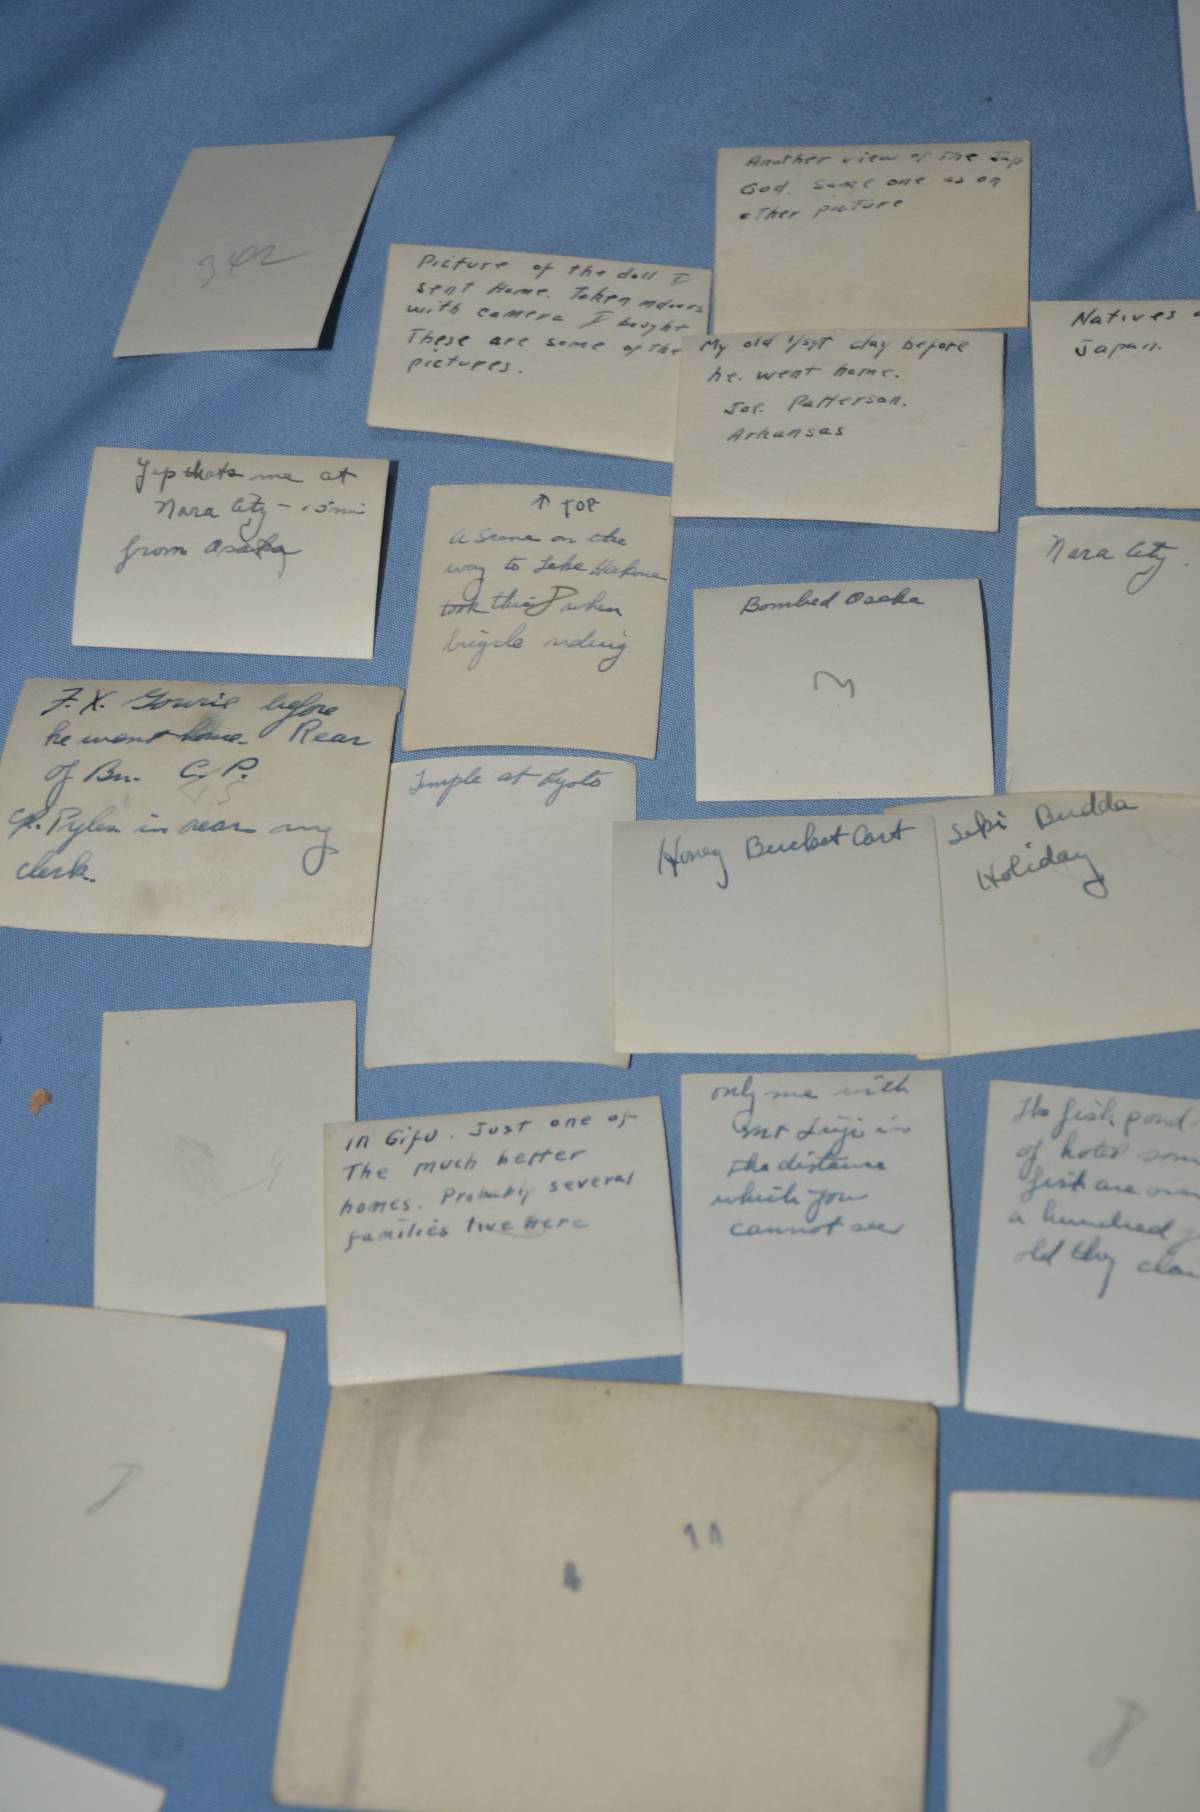 Another view of the Jap
God. Same one as on
other picture
Picture of the doll I
sent Home. Taken indoors
with camera I bought
These are some of the
pictures.
Natives
Japan.
My old 1/sgt day before
he went home.
Joe Patterson.
Arkansas
Yep thats me at
Nara City - 15 mi
from Osaka
↑ TOP
a scene on the
way to Lake Hakone
took this I when
bicycle riding
Nara City.
Bombed Osaka
3
F. X. Gowrie before
he went home. Rear
of Bn. C.P.
Pyles in rear my
clerk.
Temple at Kyoto
Honey Bucket Cart
Seki Budda
Holiday
In Gifu. Just one of
The much better
homes. Probably several
families live Here
only me with
mt Fuji in
the distance
which you
cannot see
The fish pond
of hotel
fish are
a hundred
old they
14
4
8